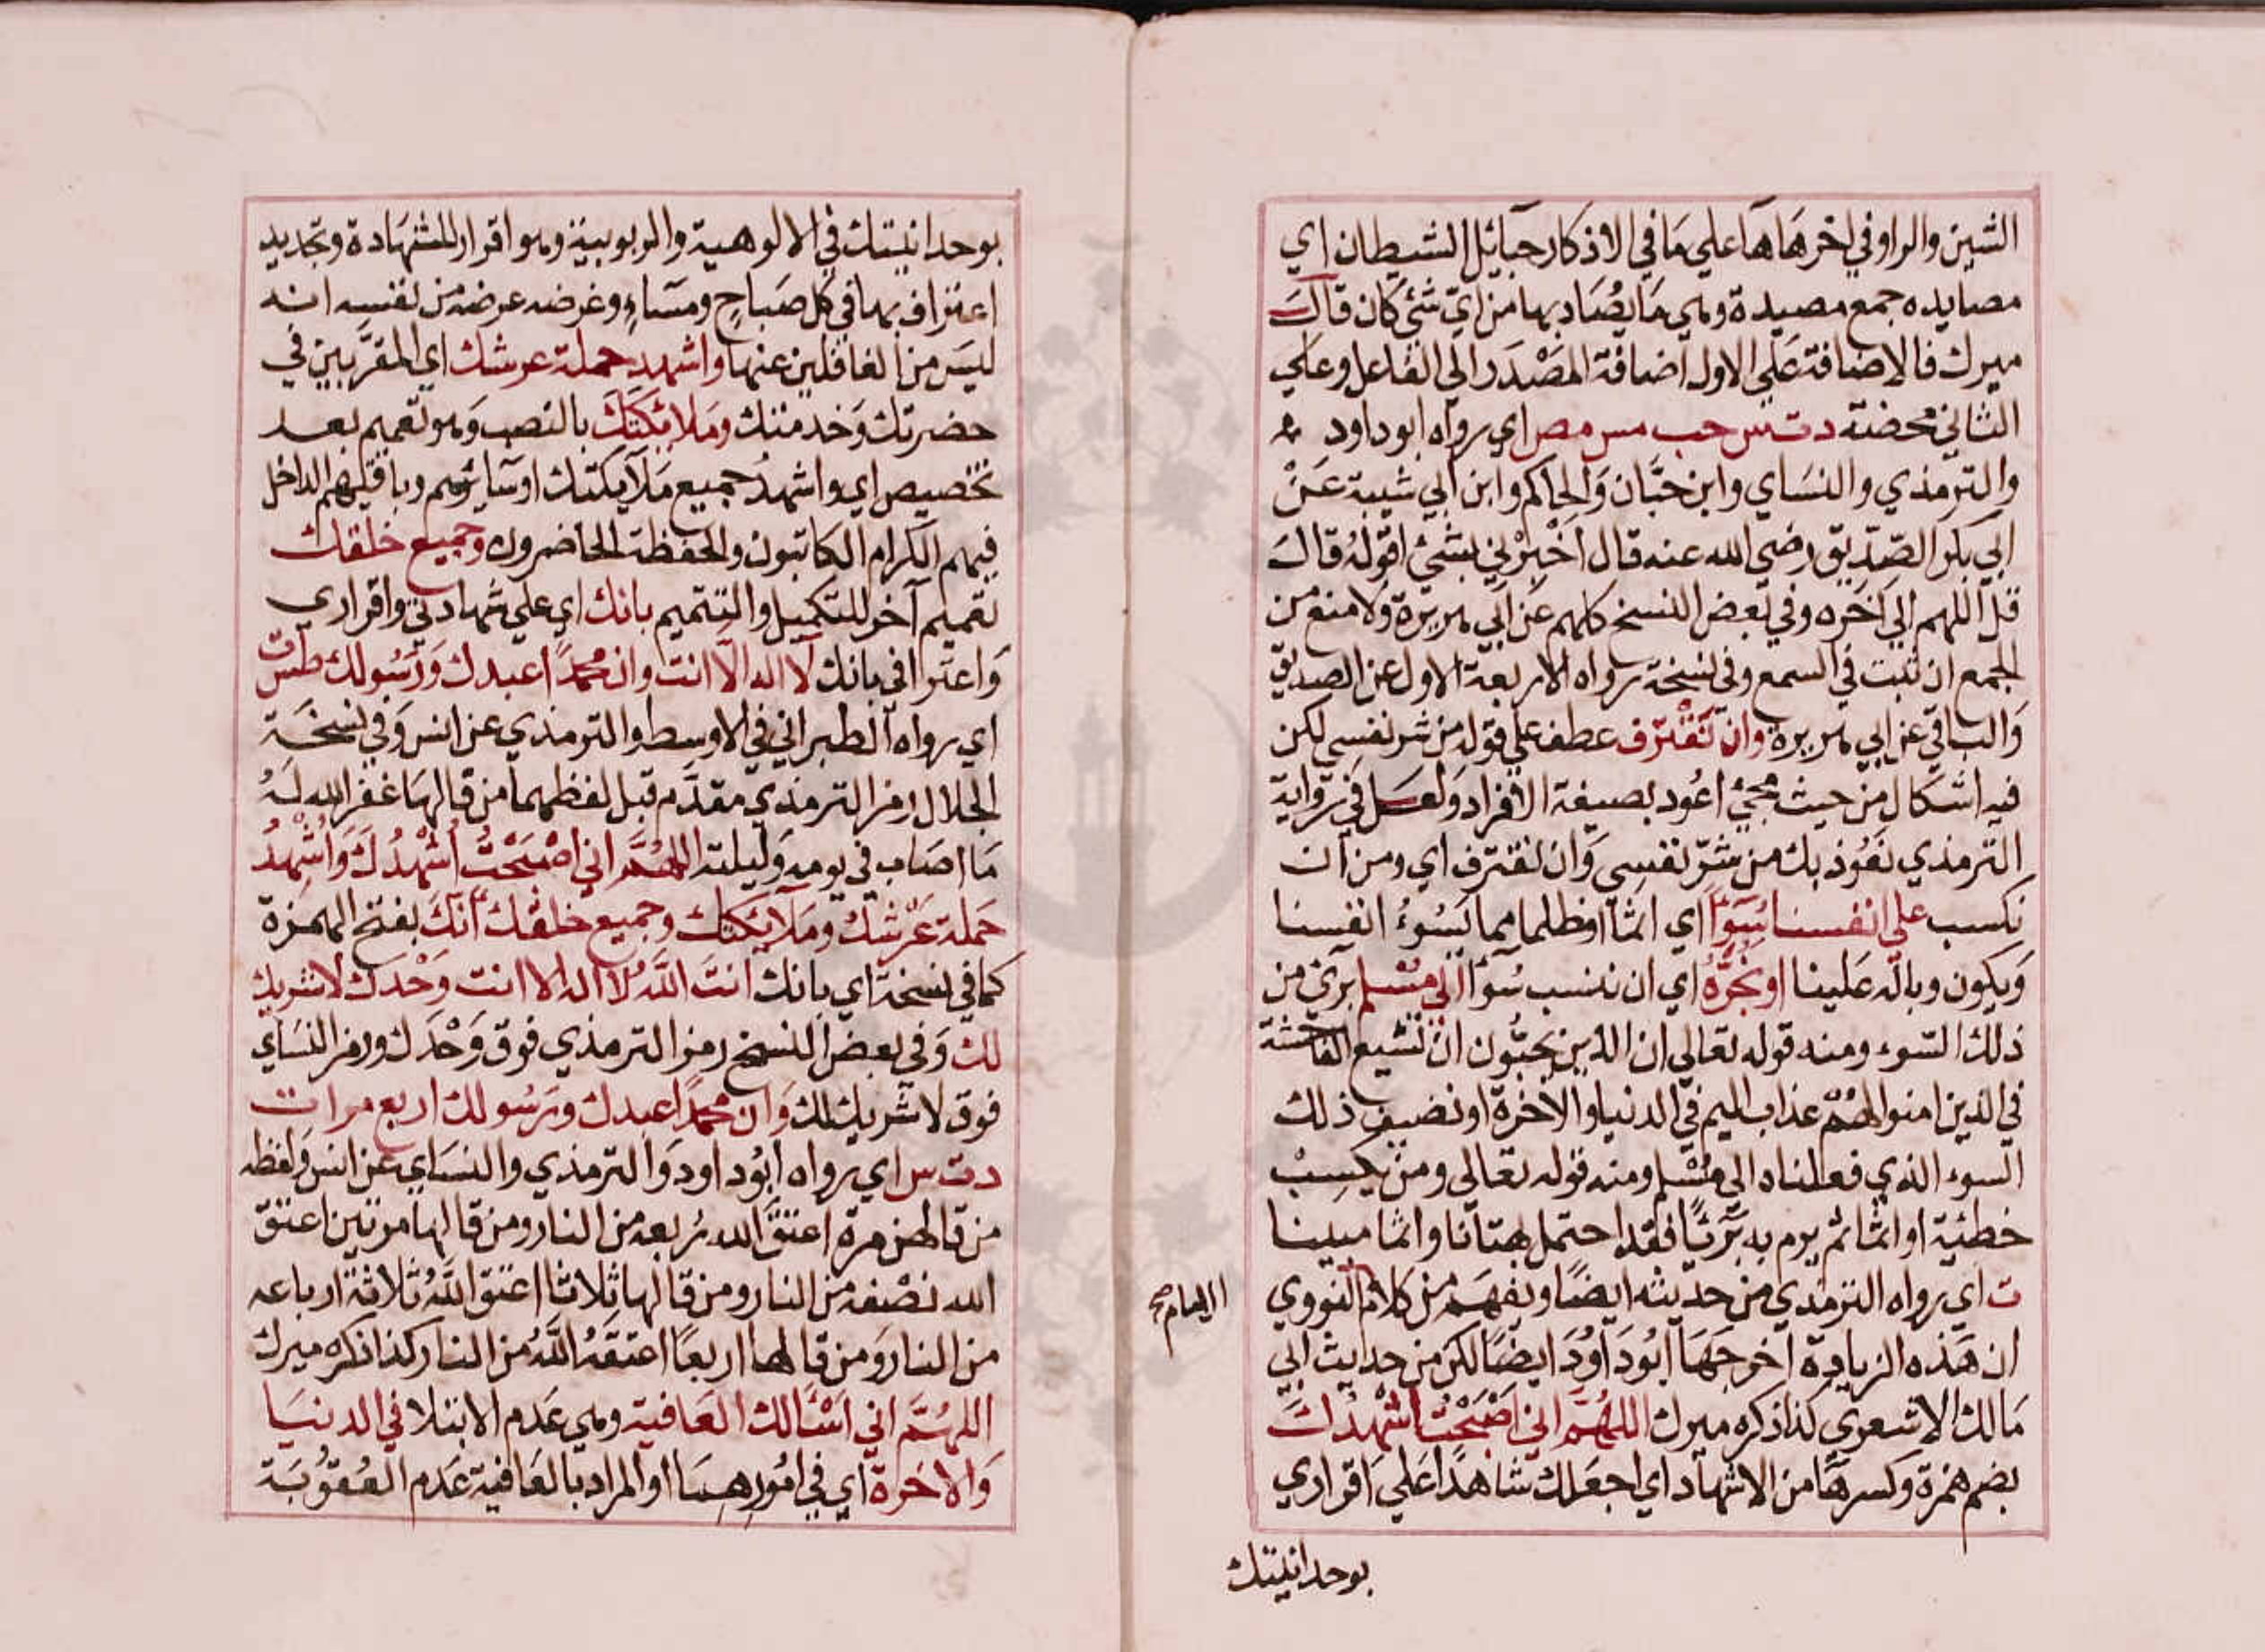 الشين والراو في اخرها ها علي ما في الاذكار حبائل الشيطان اي
مصايده جمع مصيدة وهي ما يصاد بها من اي شئ كان قال
ميرك فالاضافة علي الاول اضافة المصدر الي الفاعل وعلي
الثاني محضة د ت س حب مس مص اي رواه ابو داود
والترمذي والنساي وابن حبان والحاكم وابن ابي شيبة عن
ابي بكر الصديق رضي الله عنه قال اخبرني بشئ اقوله قال
قل اللهم الي اخره وفي بعض النسخ كلهم عن ابي هريرة ولا منع من
الجمع ان ثبت في السمع وفي نسخة رواه الاربعة الاول عن الصديق
والباقي عن ابي هريرة وان نقترف عطف علي قوله من شر نفسي لكن
فيه اشكال من حيث مجئ اعود بصيغة الافراد ولعل في رواية
الترمذي نعوذ بك من شر نفسي وان نقترف اي ومن ان
نكسب علي انفسنا سوًا اي اثما او ظلما مما يسوءُ انفسنا
ويكون وباله علينا او نجُرَّهُ اي ان ننسب سُوآ الي مُسْلم بريئ من
ذلك السوء ومنه قوله تعالي ان الذين يحبّون ان تشيع الفاحشة
في الذين امنوا لهم عذاب اليم في الدنيا والاخرة او نضيف ذلك
السوء الذي فعلناه الي مُسْلم ومنه قوله تعالي ومن يكسِبْ
خطئية او اثما ثم يرم به بَرّيًا فقد احتمل بهتانا واثما مبينا
ت اي رواه الترمذي من حديثه ايضًا ويفهم من كلام النووي
الامام صح
ان هذه الزيادة اخرجها ابو داود ايضًا لكن من حديث ابي
مالك الاشعري كذا ذكره ميرك اللهُمَّ اني اَصْبَحْتُ اُشْهِدُكَ
بضم همزة وكسرها من الاشهاد اي اجعلك شاهدًا علي اقراري
بوحدانيتك
بوحدانيتك في الالوهية والربوبية وهو اقرار للشهادة وتجديد
اعتراف بها في كل صباحٍ ومساءٍ وغرضه عرضه من نفسه انه
ليس من الغافلين عنها واشهد حملة عرشك اي المقرَّبين في
حضرتك وخدمتك وملائكتَكَ بالنصب وهو تعميم بعد
تخصيص اي واشهدُ جميع ملآيكتك او سآئرهم وباقيهم الداخل
فيهم الكرام الكاتبون والحفظة الحاضرون وجميع خلقك
تعميم آخر للتكميل والتتميم بانك اي علي شهادتي واقراري
واعترافي بانك لا اله الّا انت وان محمدًا عبدك ورسولك طس ت
اي رواه الطبراني في الاوسط والترمذي عن انس وفي نسخة
الجلال رمز الترمذي مقدّم قبل لفظهما من قالها غفر الله لهُ
ما اصاب في يومه وليلته اللهُمَّ اني اَصْبَحْتُ اُشْهِدُكَ وَاُشْهِدُ
حَملة عَرْشك وملآيكتك وجميع خلقك اَنَّكَ بفتح الهمزة
كما في نسخة اي بانك انتَ اللهُ لا اله الا انت وَحْدك لا شريك
لك وفي بعض النسخ رمز الترمذي فوق وَحْدك ورمز النساي
فوق لا شريك لك وان محمدًا عبدك ورسولك اربع مرات
د ت س اي رواه ابو داود والترمذي والنساي عن انس ولفظه
من قالهن مرة اعتق الله رُبعه من النار ومن قالها مرتين اعتق
الله نصْفه من النار ومن قالها ثلاثا اعتق اللهُ ثلاثة ارباعه
من النار ومن قالها اربعًا اعتقَهُ اللهُ من النار كذا ذكره ميرك
اللهُمَّ اني اَسْئالك العافية وهي عَدم الابتلا في الدنيا
والاخرة اي في امُورهمَا او المراد بالعافية عَدم العُقوُبَة